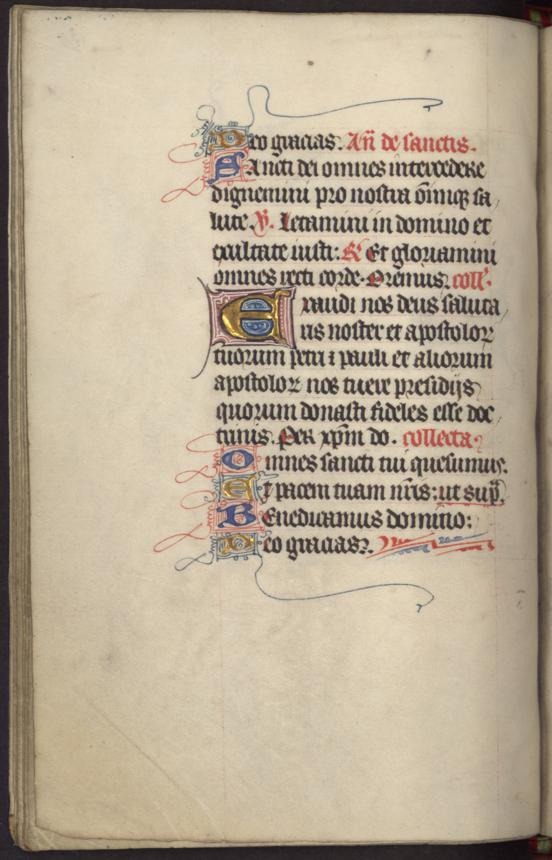 Deo gracias. An̄ de sanctis.
Sancti dei omnes intercedere
dignemini pro nostra om̄iuꝫ sa
lute. V. Letamini in domino et
exultate iusti: R Et gloriamini
omnes recti corde. Oremus. coll'.
Exaudi nos deus saluta
ris noster et apostoloꝝ
tuorum petri ⁊ pauli et aliorum
apostoloꝝ nos tuere presidijs
quorum donasti fideles esse doc
trinis. Per xp̄m do. collecta.
Omnes sancti tui quesumus.
Et pacem tuam nr̄is: ut sup̄.
Benedicamus domino:
Deo gracias.